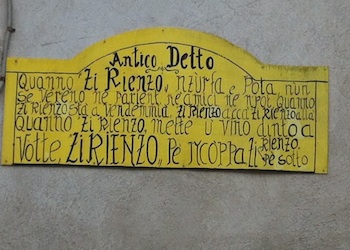 Antico Detto
Quanno, Zi Rienzo, nzurfa e Pota, nun
se vereno né parient né amici né nipoti, quanno
Zi Rienzo sta a vendemmia, Zi Rienzo a ccà Zi Rienzo allà
quanno Zi Rienzo, mette u vino dinto a
votte, Zi RIENZO,, Pe ncoppa Zi Rienzo.
Pe sotto